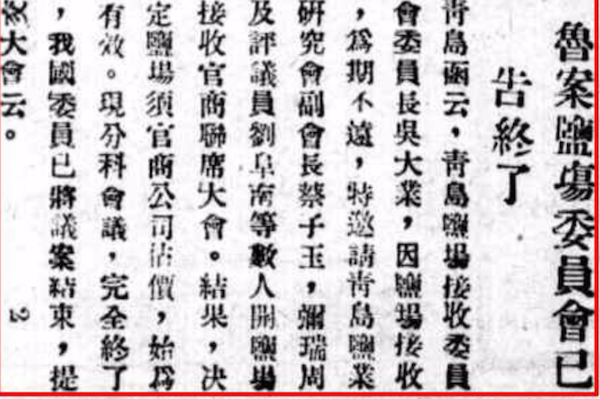 魯案鹽場委員會已
告終了
青島函云，青島鹽場接收委員
會委員長吳大業，因鹽場接收
，爲期不遠，特邀請靑島鹽業
硏究會副會長蔡子玉，彌瑞周
及評議員劉阜南等數人開鹽場
接收官商聯席大會。結果，决
定鹽場須官商公司估價，始爲
有效。現分科會議，完全終了
，我國委員已將議案結束，提
大會云。
2